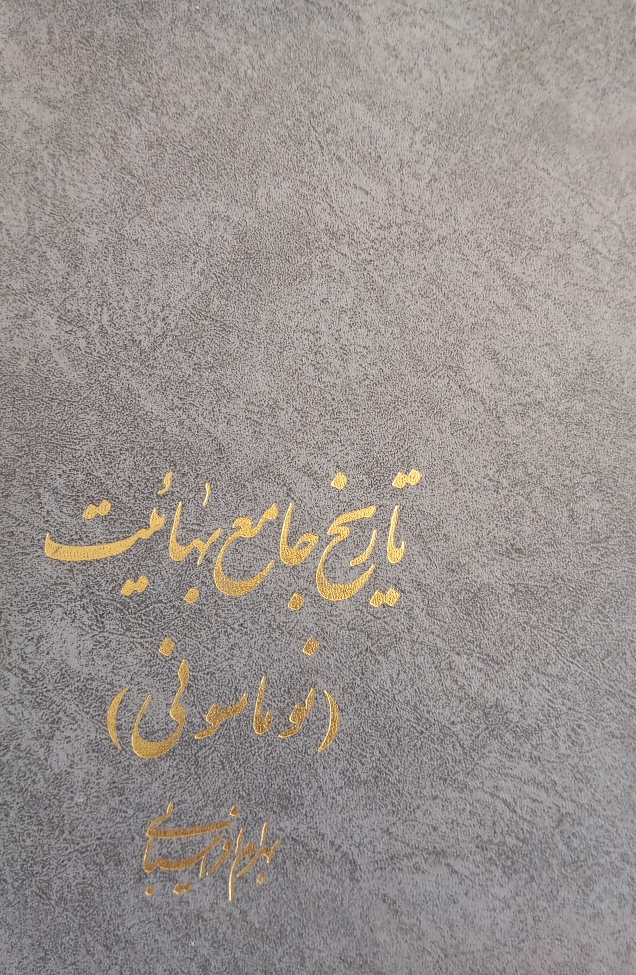 تاریخ جامع بهائیت
(نوماسونی)
بهرام افراسیابی